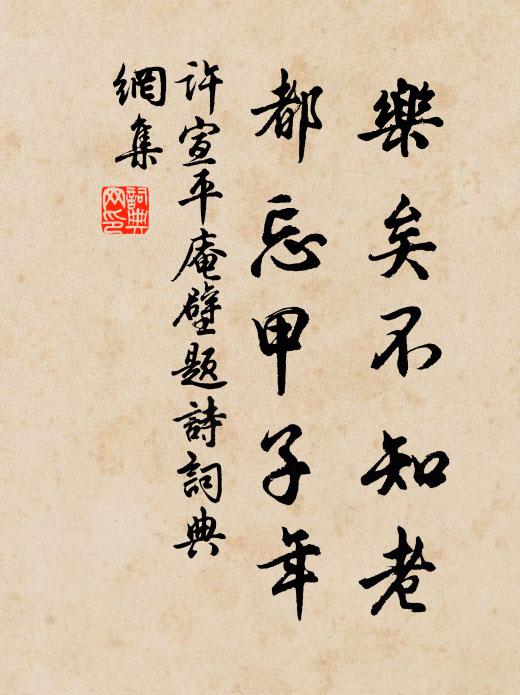 樂矣不知老
都忘甲子年
許宣平庵壁題詩詞典
網集
詞典
网印